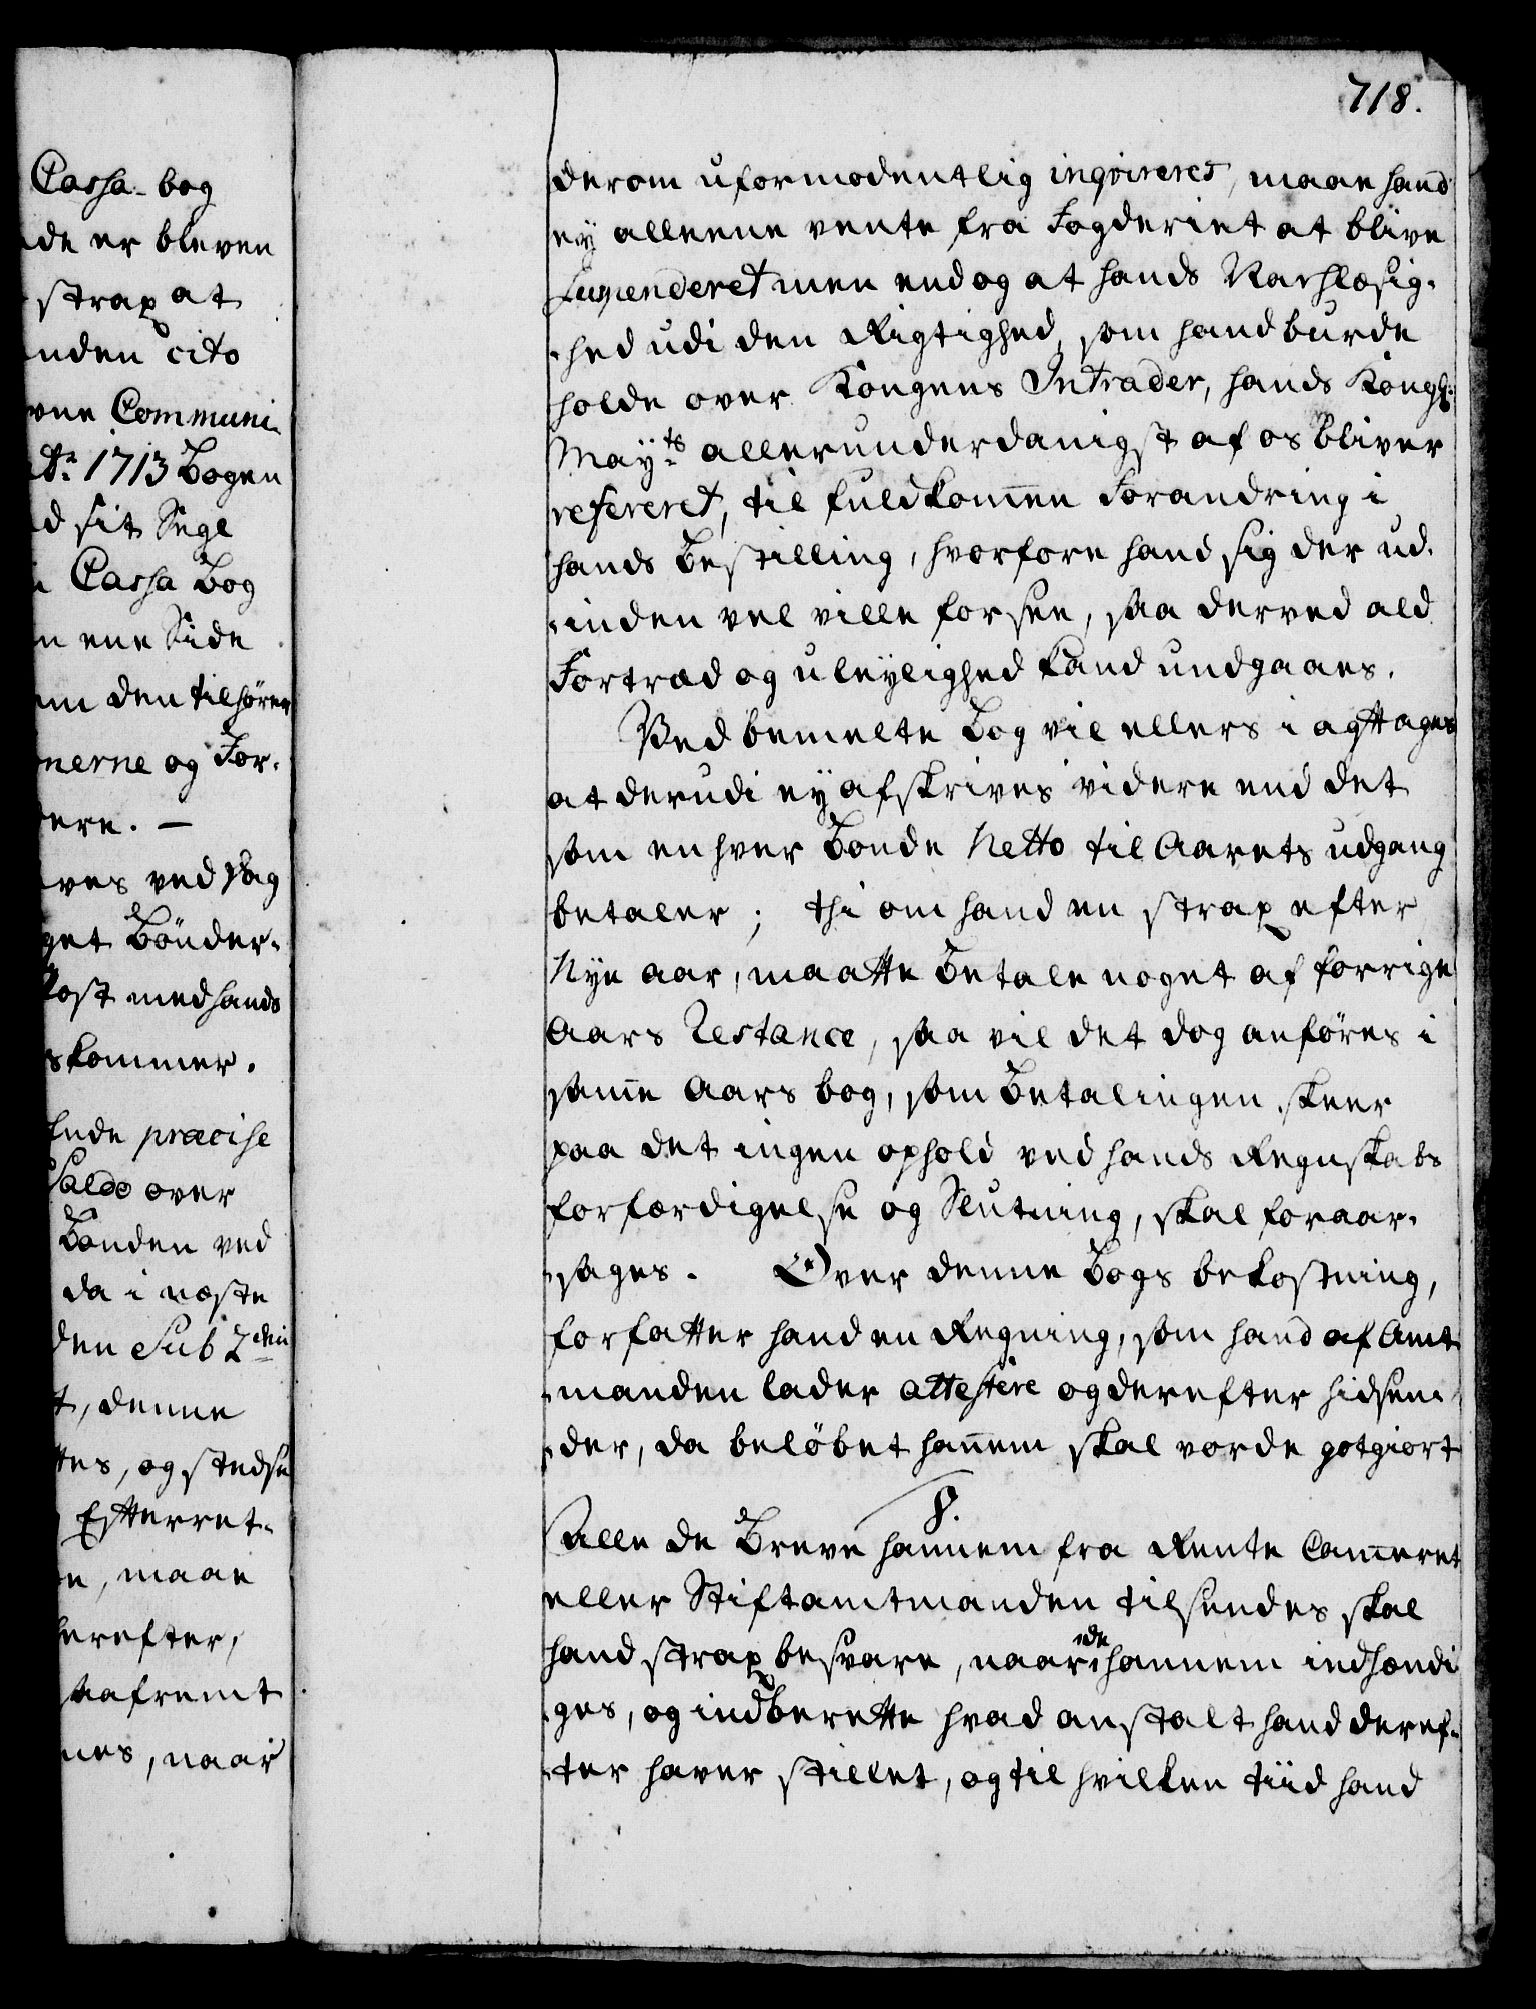 718.
Cassa-bog
de er bleven
strax at
nden cito
vne Communi-
Ao. 1713 Bogen
d sit Segl
Cassa Bog
n ene Side
m den tilhører
nerne og For-
ere. —
ves ved slag
get Bönder-
kost med hands
skommer.
præcise
Saldo over
Bonden ved
da i næste
den Sub 2
t, denne
tes, og stedse
Efterret-
e, maae
herefter,
aafremt
nes, naar
derom uformodentlig inqvireres, maae hand
ey alleene vente fra Fogderiet at blive
suspenderet men endog at hands Nachlæsig-
-hed udi den Rigtighed, som hand burde
holde over Kongens Intrader, hands Kongl:
Mayts allerunderdanigst af os bliver
refereret, til fuldkommen Forandring i
hands Bestilling, hvorfore hand sig der ud-
-inden vel ville forsee, saa derved ald
Fortræd og uleylighed kand undgaaes.
Ved bemelte Bog vil ellers i agttages
at derudi ey afskrives videre end det
som enhver Bonde Netto til Aarets udgang
betaler; thi om hand en strax efter
Nye aar, maatte Betale noget af forrige
Aars Restance, saa vil det dog anföres i
samme Aars bog, som Betalingen skeer
paa det ingen ophold ved hands Regnskabs
forfærdigelse og Slutning, skal foraar-
-sages. Over denne Bogs bekostning,
forfatter hand en Regning, som hand af Amt
-manden lader attestere og derefter hidsen-
-der, da belöbet hannem skal vorde gotgiort
8.
Alle de Breve hannem fra Rente Cammeret
eller Stiftamtmanden tilsendes skal
hand strax besvare, naar de hannem indhændi
-ges, og indberette hvad anstalt hand deref-
-ter haver stillet, og til hvilken tiid hand